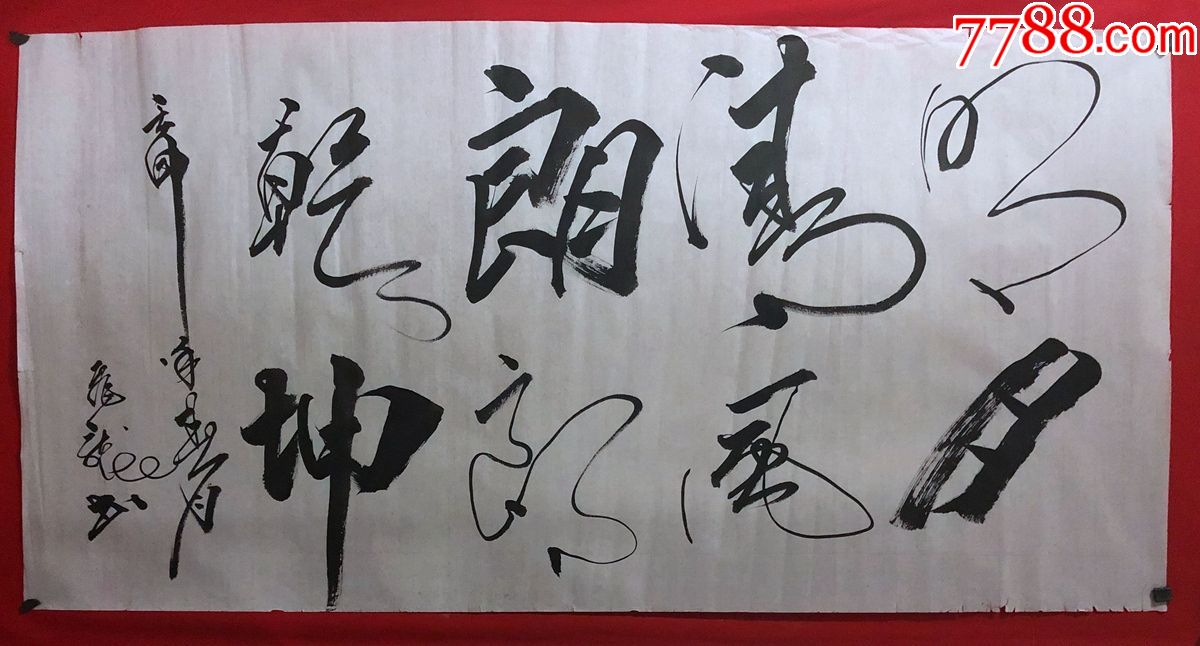 7788.com
明月
清风
朗朗
乾坤
年春月
书